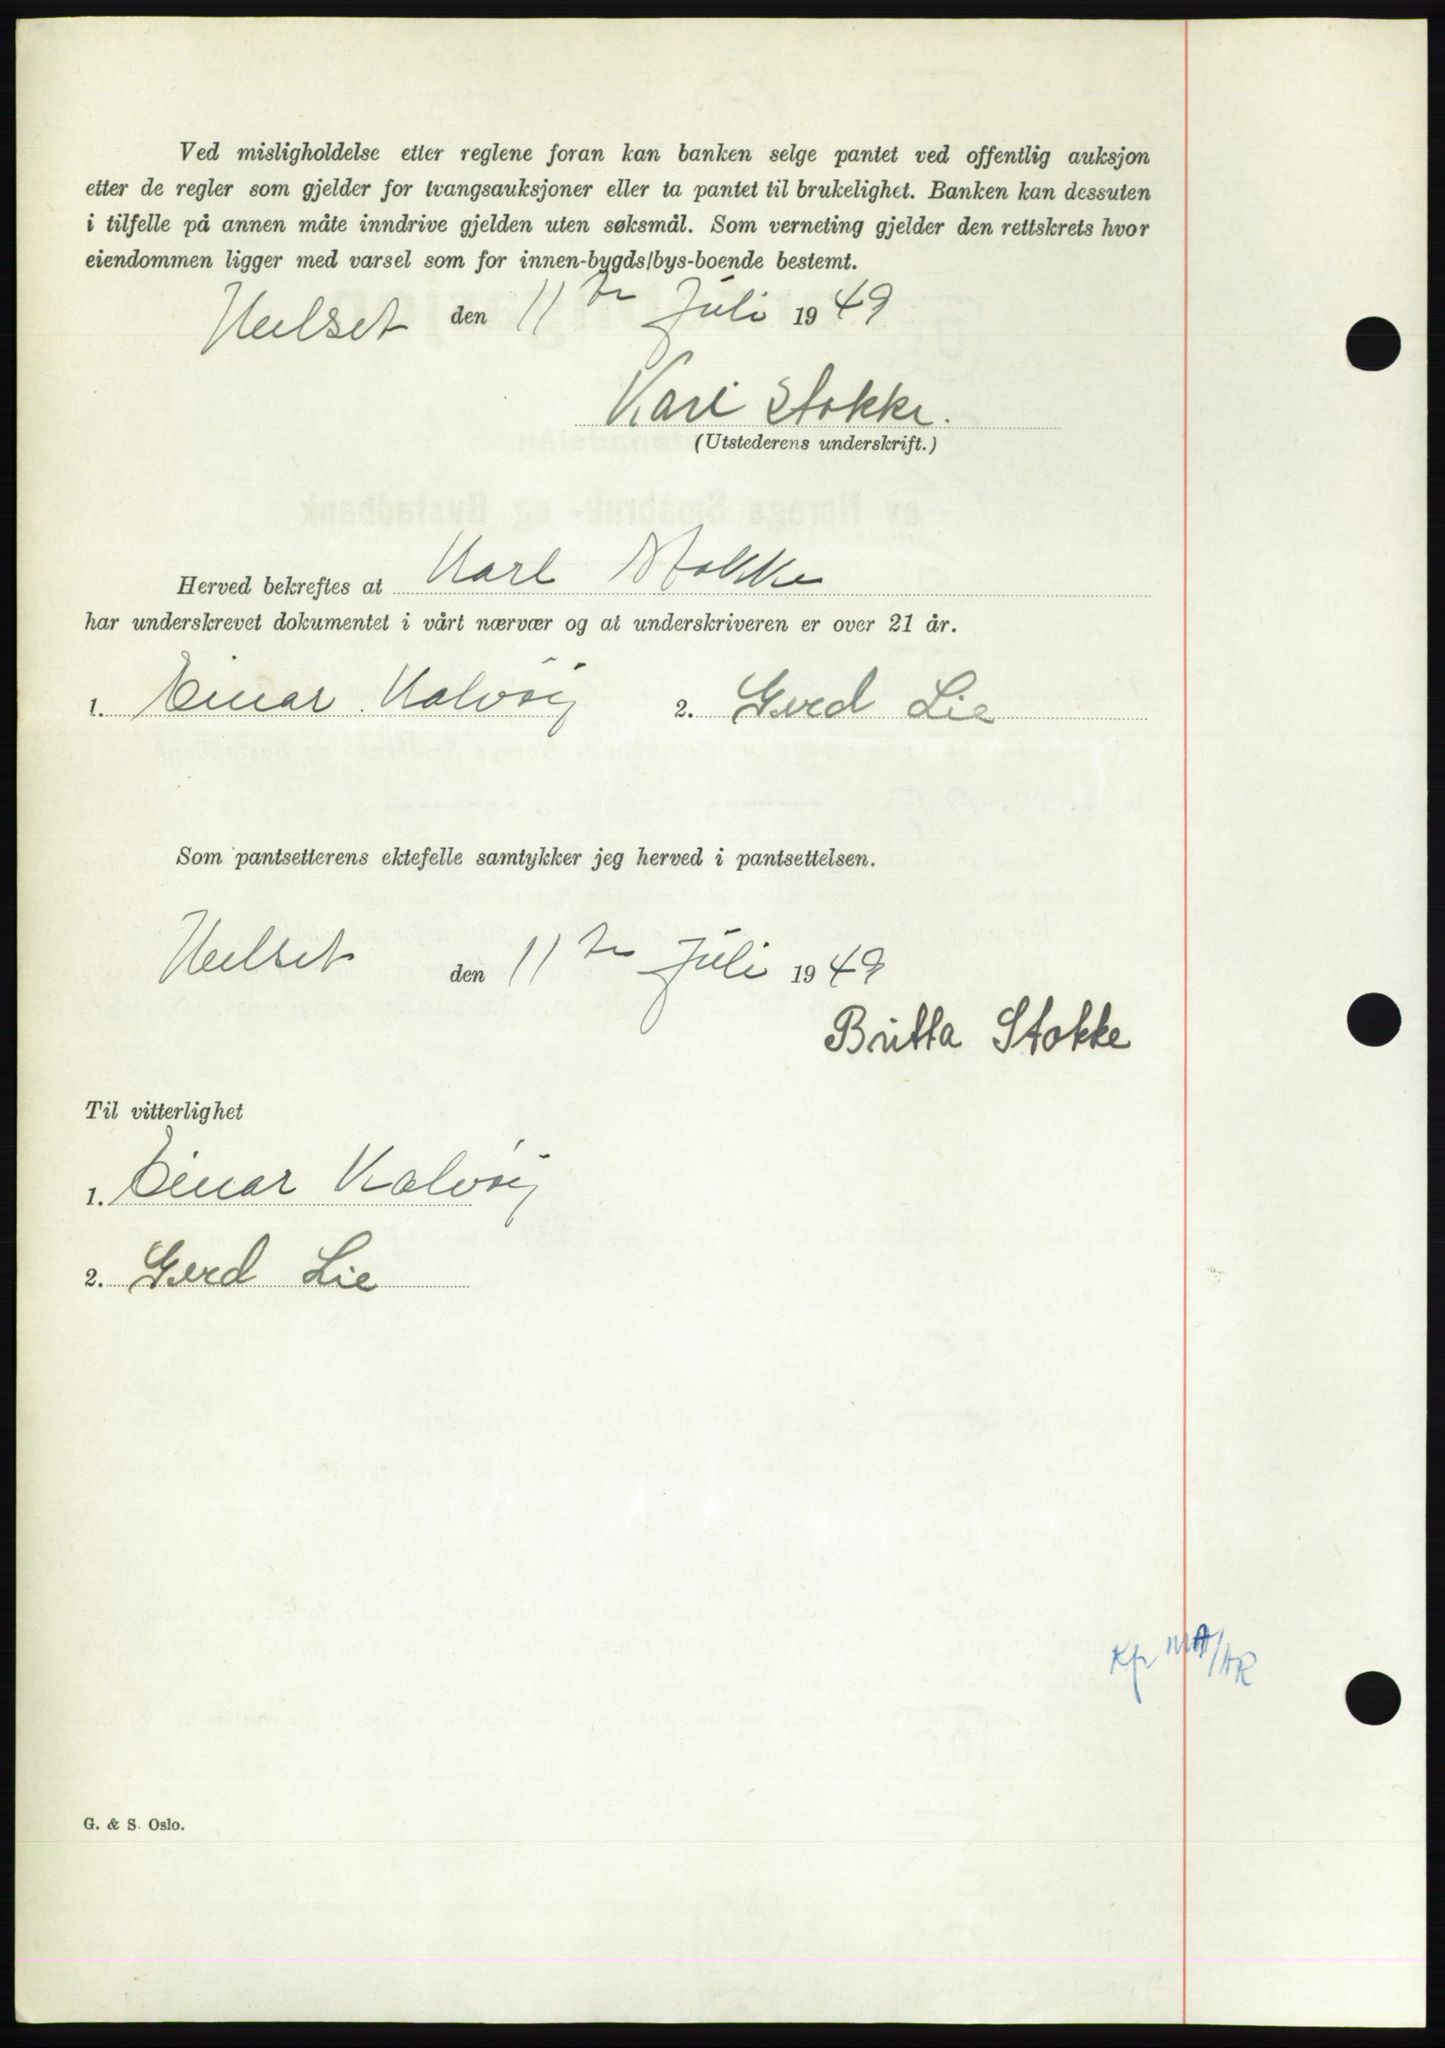 Ved misligholdelse etter reglene foran kan banken selge pantet ved offentlig auksjon
etter de regler som gjelder for tvangsauksjoner eller ta pantet til brukelighet. Banken kan dessuten
i tilfelle på annen måte inndrive gjelden uten søksmål. Som verneting gjelder den rettskrets hvor
eiendommen ligger med varsel som for innen-bygds/bys-boende bestemt.
den 11te Juli 1949
Karl Stokke.
(Utstederens underskrift.)
Herved bekreftes at Karl Stokke
har underskrevet dokumentet i vårt nærvær og at underskriveren er over 21 år.
1. Einar Kalvøy 2. Gerd Lie
Som pantsetterens ektefelle samtykker jeg herved i pantsettelsen.
den 11te Juli 1949
Britta Stokke
Til vitterlighet
1. Einar Kalvøy
2. Gerd Lie
G. & S. Oslo.